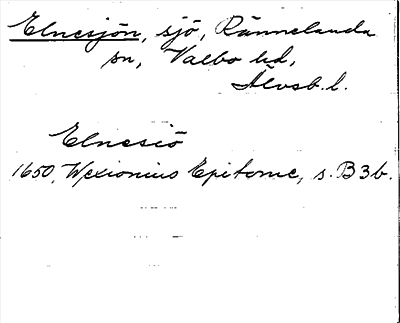 Elnesjön, sjö, Rännelanda
sn, Valbo hd,
Älvsb. l.
Elnesiö
1650, Wexionius Epitome, s. B3b.